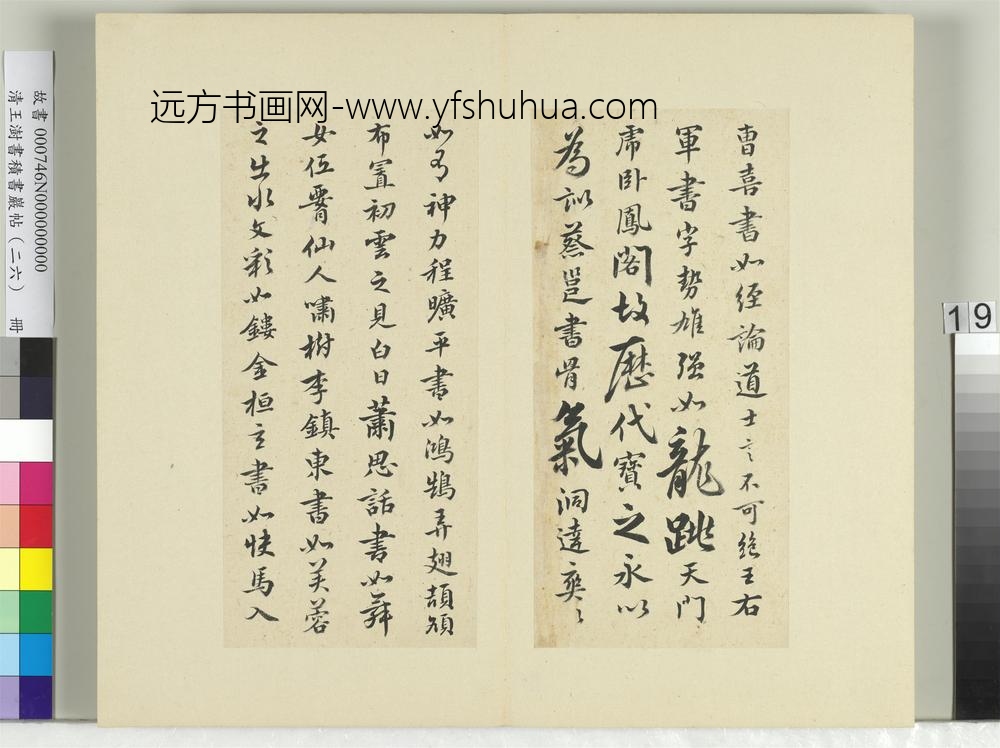 远方书画网-www.yfshuhua.com
故書 000746N000000000
清王澍書積書巖帖（二六） 冊
19
曹喜書如經論道士言不可絕王右
軍書字勢雄强如龍跳天門
虎卧鳳閣故歷代寶之永以
為訓蔡邕書骨氣洞達爽〻
如有神力程曠平書如鴻鵠弄翅頡頏
布置初雲之見白日蕭思話書如舞
女低腰仙人嘯樹李鎮東書如芙蓉
之出水文彩如鏤金桓玄書如快馬入